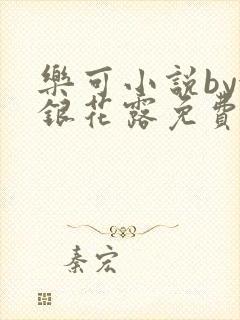 樂可小説by
銀花露免費
秦宏